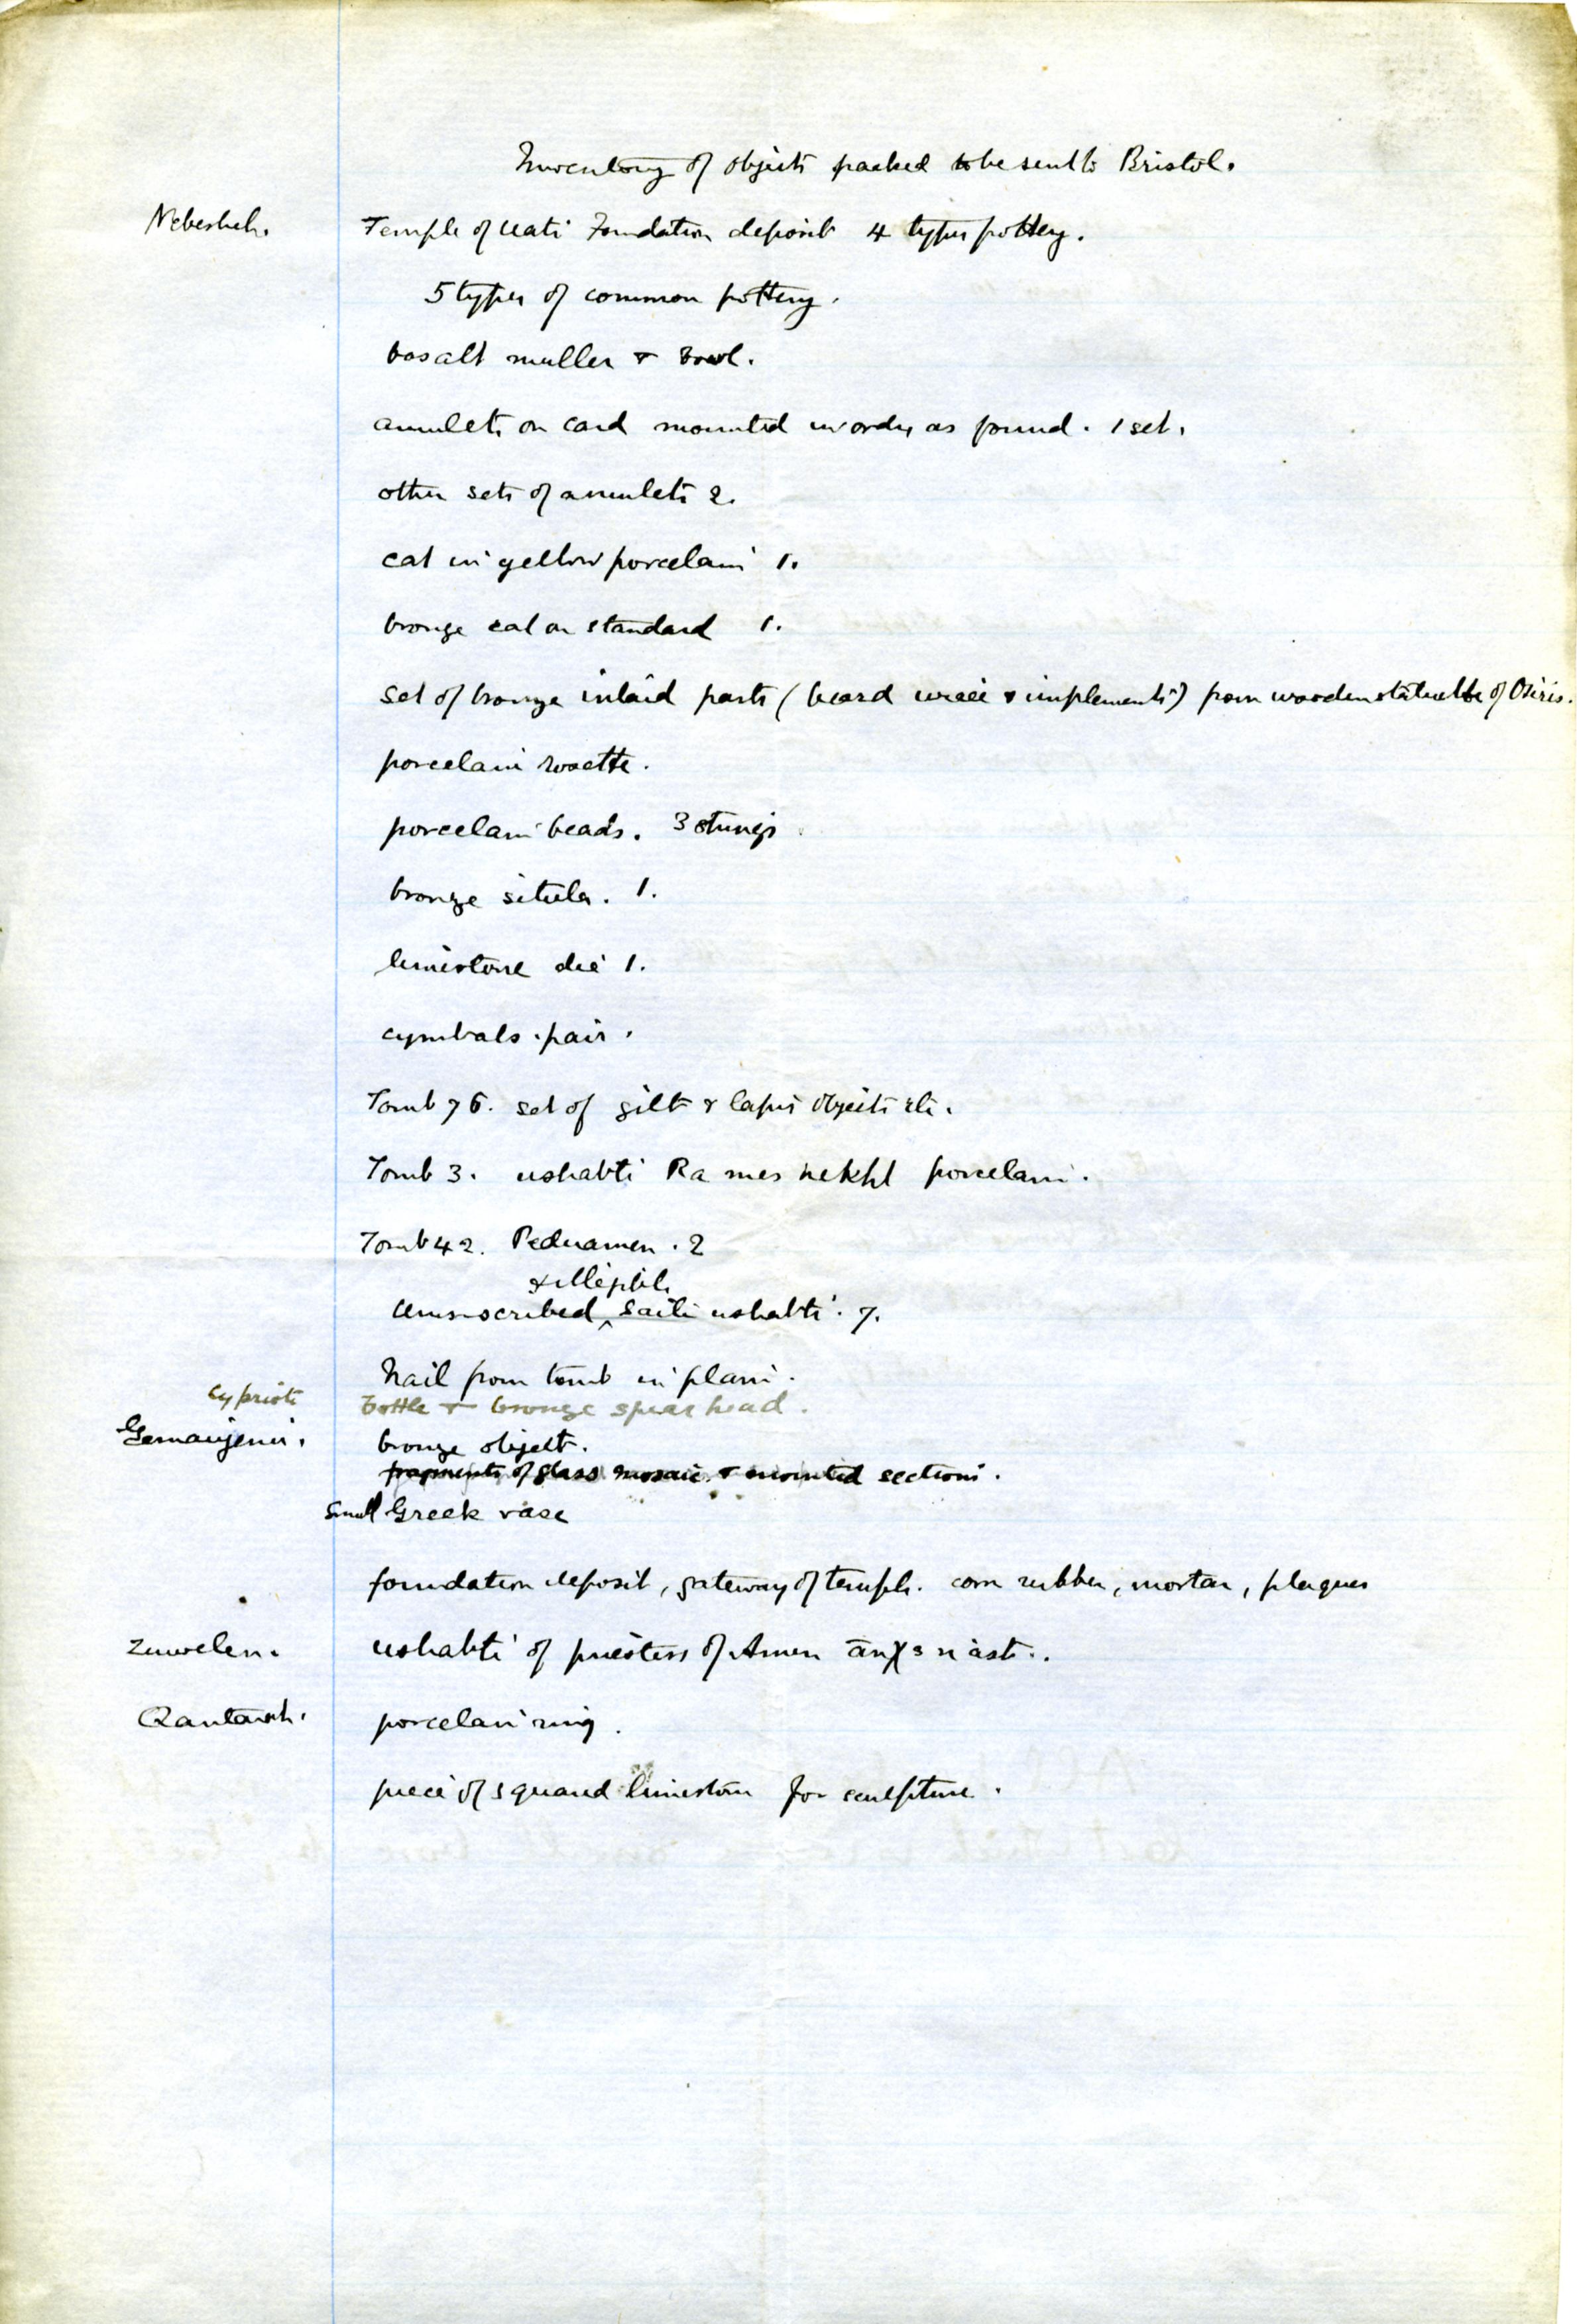 Inventory of objects packed to be sent to Bristol.
Nebesheh. Temple of Uati Foundation deposit 4 types pottery.
5 types of common pottery.
basalt muller & bowl.
amulets on card mounted in order as found. 1 set.
other sets of amulets 2.
cat in yellow porcelain 1.
bronze cat on standard 1.
set of bronze inlaid parts (beard uraei & implements) from wooden statuette of Osiris.
porcelain rosette.
porcelain beads. 3 strings
bronze situla. 1.
limestone die 1.
cymbals. pair.
Tomb 76. set of gilt & lapis objects etc.
Tomb 3. ushabti Ra mes nekht porcelain.
Tomb 42. Peduamen. 2
& illegible
Uninscribed ‸ Saiti ushabti. 7.
Nail from tomb in plain.
Cypriote bottle & bronze spear head.
Gemaiyemi. bronze object.
fragments of glass mosaic & mounted sections.
Small Greek vase
foundation deposit, gateway of temple. corn rubber, mortar, plaques
Zuwelen. ushabti of priestess of Amen
Qantarah. porcelain ring.
piece of squared limestone for sculpture.